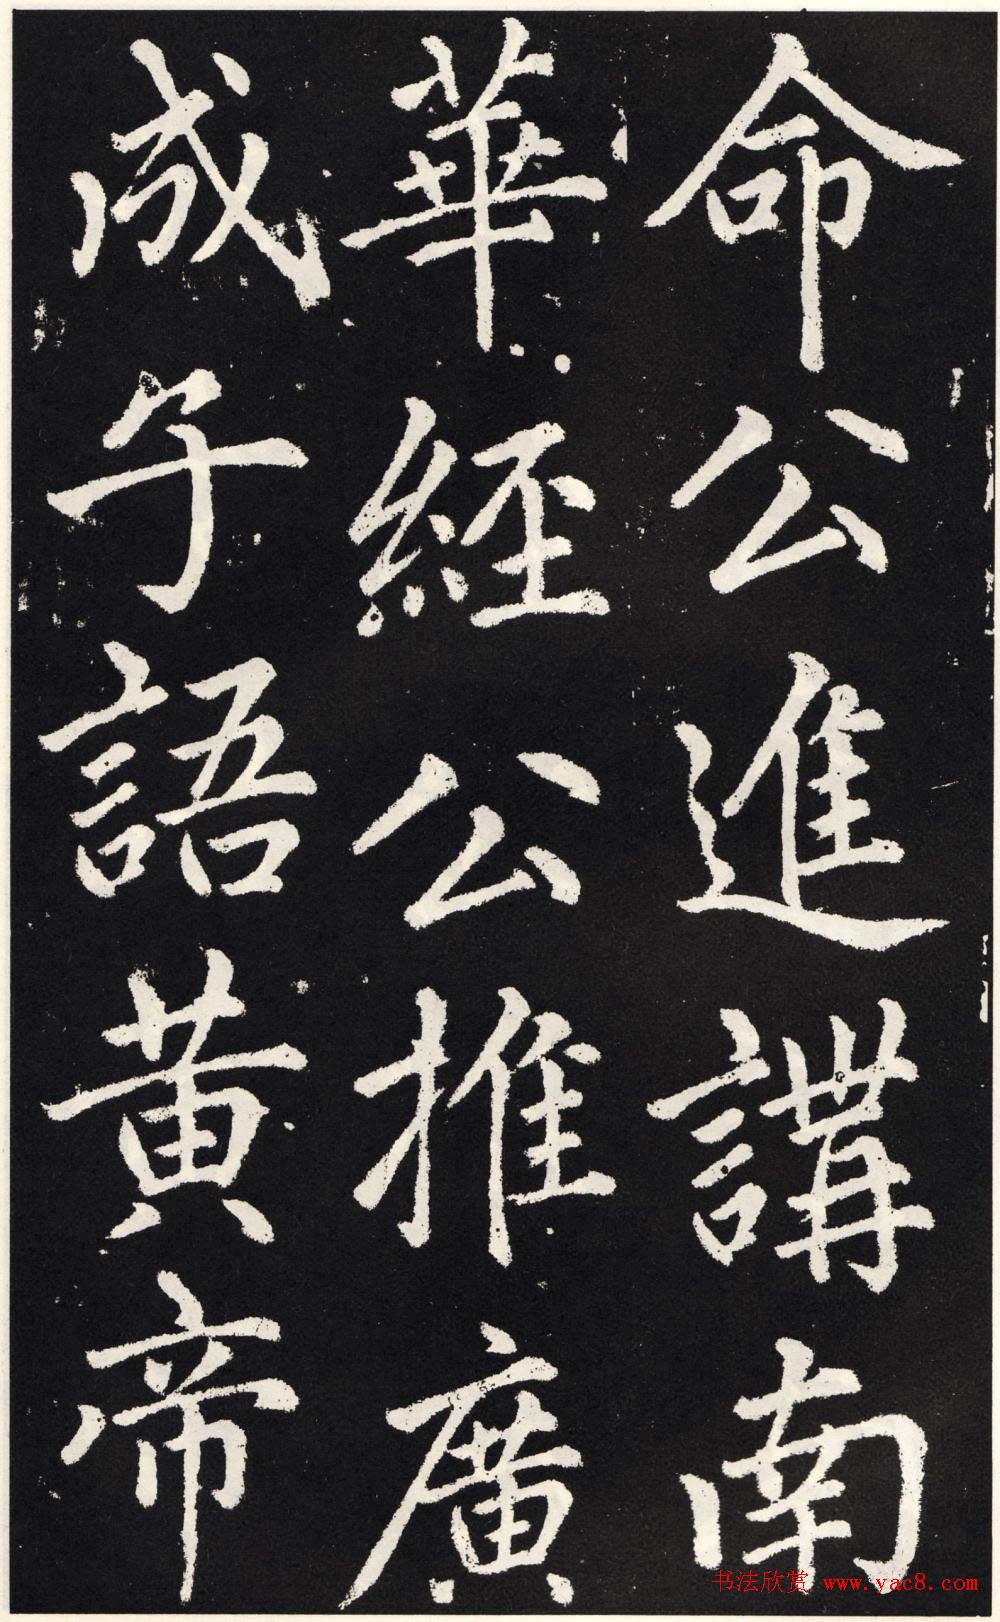 命公進講南
華經公推廣
成子語黄帝
书法欣赏 www.yac8.com